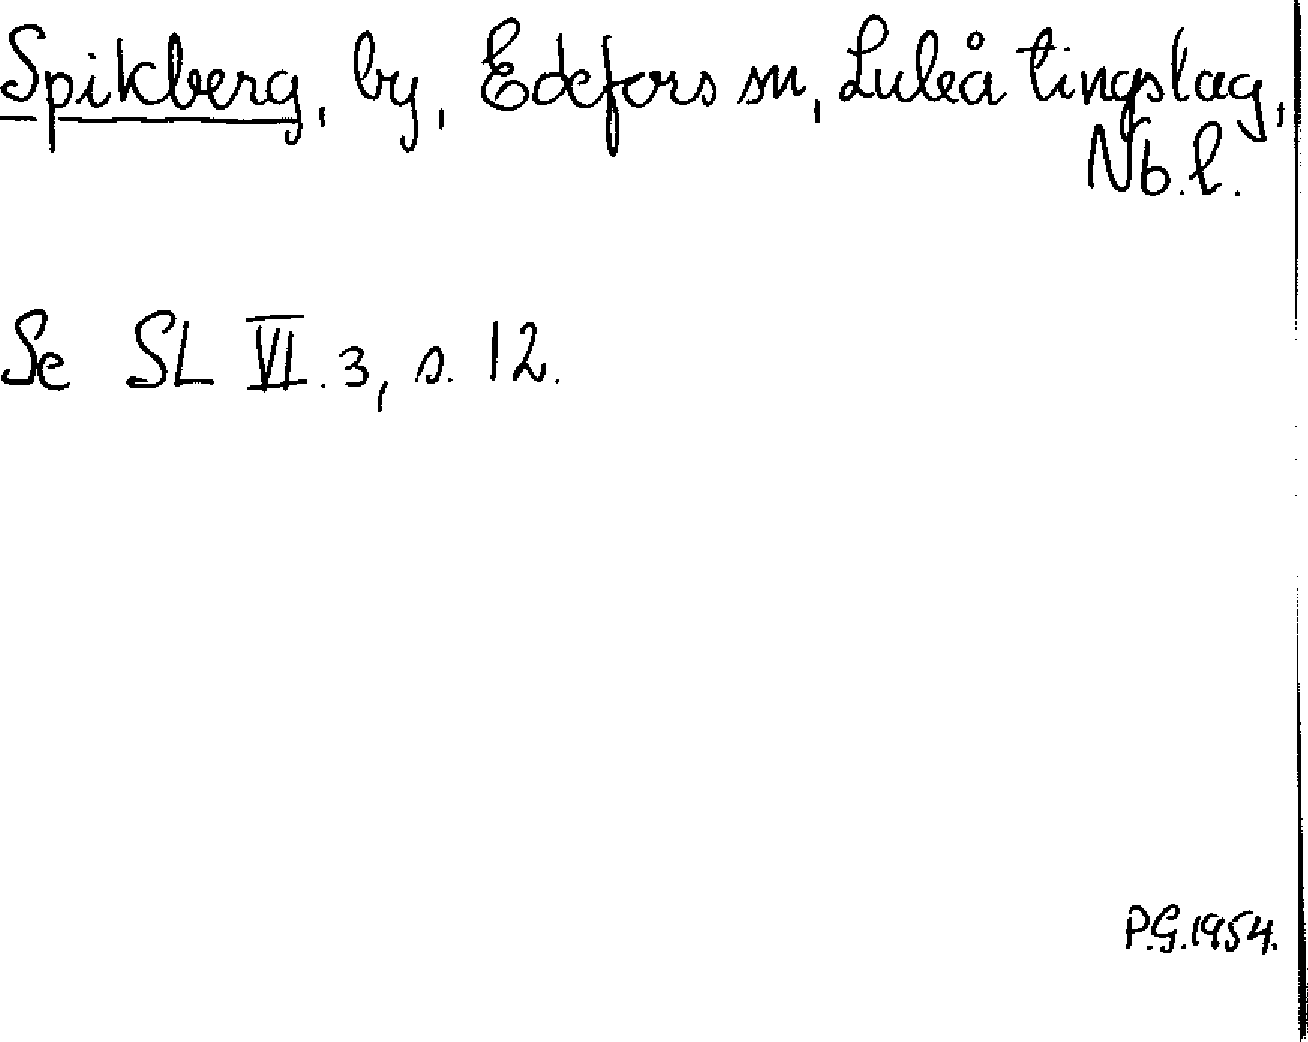 Spikberg, by, Edefors sn, Luleå tingslag,
Nb.l.
Se SL VI.3, s. 12.
P.G.1954.